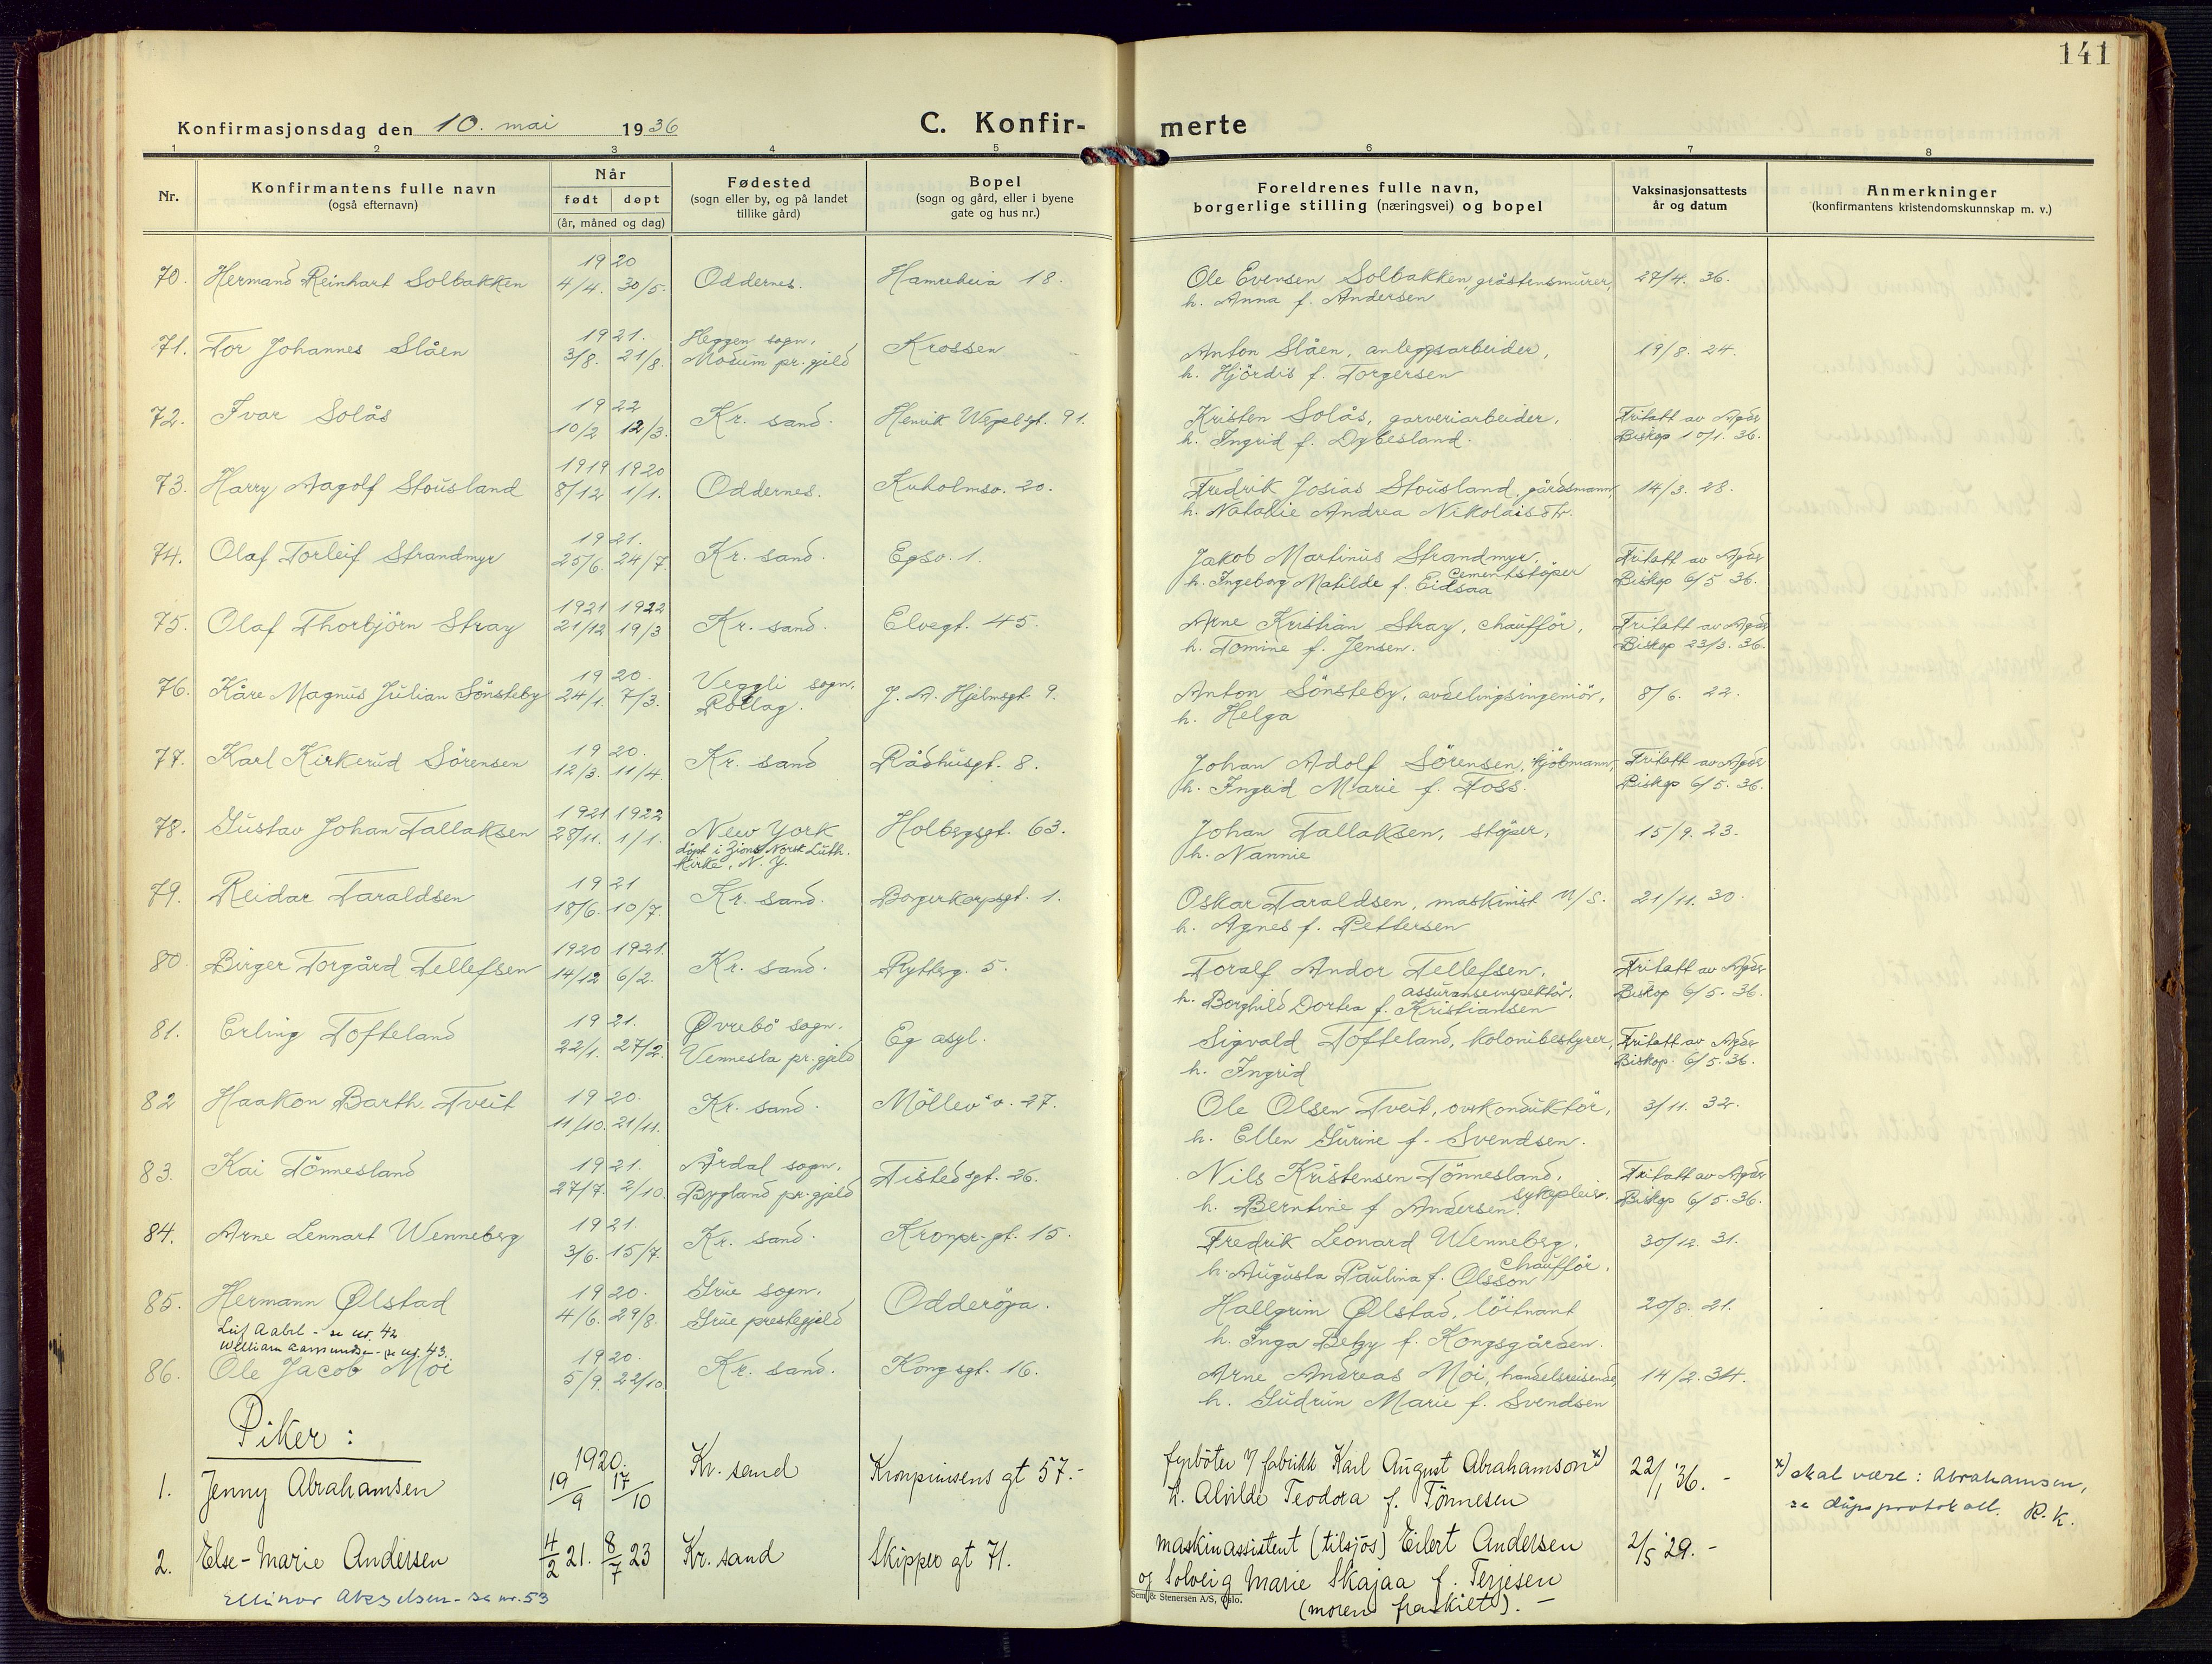 141
Konfirmasjonsdag den 10. mai 1936
C. Konfir-merte
1 2 3 4 5 6 7 8
Nr.
Konfirmantens fulle navn
(også efternavn)
Når
født døpt
(år, måned og dag)
Fødested
(sogn eller by, og på landet
tillike gård)
Bopel
(sogn og gård, eller i byene
gate og hus nr.)
Foreldrenes fulle navn,
borgerlige stilling (næringsvei) og bopel
Vaksinasjonsattests
år og datum
Anmerkninger
(konfirmantens kristendomskunnskap m. v.)
1920
70. Hermand Reinhart Solbakken 4/4. 30/5. Oddernes. Hamreheia 18. Ole Evensen Solbakken, gråstensmurer, 27/4. 36.
h. Anna f. Andersen
1921.
71. Tor Johannes Slåen 3/8. 21/8. Heggen sogn, Krossen Anton Slåen, anleggsarbeider, 19/8. 24.
Modum pr.gjeld h. Hjördis f. Torgersen
1922
72. Ivar Solås 10/2 12/3. Kr. sand. Henrik Wergelsgt. 91. Kristen Solås, garveriarbeider, Fritatt av Agder
h. Ingrid f. Dybesland. Biskop 10/1. 36.
1919 1920
73. Harry Aagolf Stousland 8/12 1/1. Oddernes. Kuholmsv. 20. Fredrik Josias Stousland, gårdsmann, 14/3. 28.
h. Natalie Andrea Nikolaisdtr.
1921.
74. Olaf Torleif Strandmyr 25/6. 24/7. Kr. sand. Egsv. 1. Jakob Martinus Strandmyr, Fritatt av Agder
cementstöper
h. Ingeborg Matilde f. Eidsaa Biskop 6/5 36.
1921 1922
75. Olaf Thorbjörn Stray 21/12 19/3 Kr. sand. Elvegt. 45. Arne Kristian Stray, chaufför, Fritatt av Agder
h. Tomine f. Jensen. Biskop 23/3. 36.
1920.
76. Kåre Magnus Julian Sönsteby 24/1. 7/3. Veggli sogn, J. A. Hjelmsgt. 9. Anton Sönsteby, avdelingsingeniör, 8/6. 22.
Rollag. h. Helga
1920.
77. Karl Kirkerud Sörensen 12/3. 11/4. Kr. sand Rådhusgt. 8. Johan Adolf Sörensen, kjöbmann, Fritatt av Agder
h. Ingrid Marie f. Foss. Biskop 6/5. 36.
1921 1922
78. Gustav Johan Tallaksen 28/11. 1/1. New York Holbergsgt. 63. Johan Tallaksen, stöper, 15/9. 23.
döpt i Zions Norsk Luth. h. Nannie
Kirke, N. Y.
1921
79. Reidar Taraldsen 18/6. 10/7. Kr. sand. Borgerkorpsgt. 1. Oskar Taraldsen, maskinist M/S. 21/11. 30.
h. Agnes f. Pettersen
1920 1921.
80. Birger Torgård Tellefsen 14/12 6/2. Kr. sand. Rytterg. 5. Toralf Andor Tellefsen, Fritatt av Agder
assuranseinspektör,
h. Borghild Dortea f. Kristiansen Biskop 6/5. 36.
1921.
81. Erling Tofteland 22/1. 27/2. Øvrebö sogn, Eg asyl. Sigvald Tofteland, kolonibestyrer, Fritatt av Agder
Vennesla pr.gjeld h. Ingrid Biskop. 6/5. 36.
1920.
82 Haakon Barth Tveit 11/10. 21/11. Kr. sand. Möllev'v. 27. Ole Olsen Tveit, ovkonduktör, 3/11. 32.
h. Ellen Gurine f. Svendsen.
1921.
83. Kai Tönnesland 27/7. 2/10. Årdal sogn, Tistedsgt. 26. Nils Kristensen Tönnesland, Fritatt av Agder
sykepleier.
Bygland pr.gjeld h. Berntine f Andersen. Biskop 6/5. 36.
1921.
84. Arne Lennart Wenneberg 3/6. 15/7. Kr. sand. Kronpr.gt. 15. Fredrik Leonard Wenneberg, 30/12. 31.
chaufför,
h. Augusta Paulina f. Olsson
1920.
85. Hermann Ølstad 4/6. 29/8. Grue sogn, Odderöya. Hallgrim Ølstad, löitnant 20/8. 21.
Grue prestegjeld h. Inga Betzy f. Kongsgården.
Leif Aabel - se nr. 42
William Aamundsen - se nr. 43.
1920.
86. Ole Jacob Moi 5/9. 22/10 Kr. sand. Kongsgt. 16. Arne Andreas Moi, handelsreisende, 14/2. 34.
h. Gudrun Marie f. Svendsen
Piker:
1920.
1. Jenny Abrahamsen 19/9 17/10 Kr. sand Kronprinsens gt 57.- fyrböter v/ fabrikk Karl August Abrahamson x) 22/1 '36. -
h. Alvilde Teodora f. Tönnesen
x) skal være: Abrahamsen,
se dåpsprotokoll. R. K.
2. Else-Marie Andersen 4/2 21. 8/7 23 Kr. sand Skipper gt 71. maskinassistent (tilsjös) Eilert Andersen 2/5 '29. -
og Solveig Marie Skajaa f. Terjesen
(moren fraskilt). -
Ellinor Akselsen - se nr. 53
Sem & Stenersen A/S, Oslo.